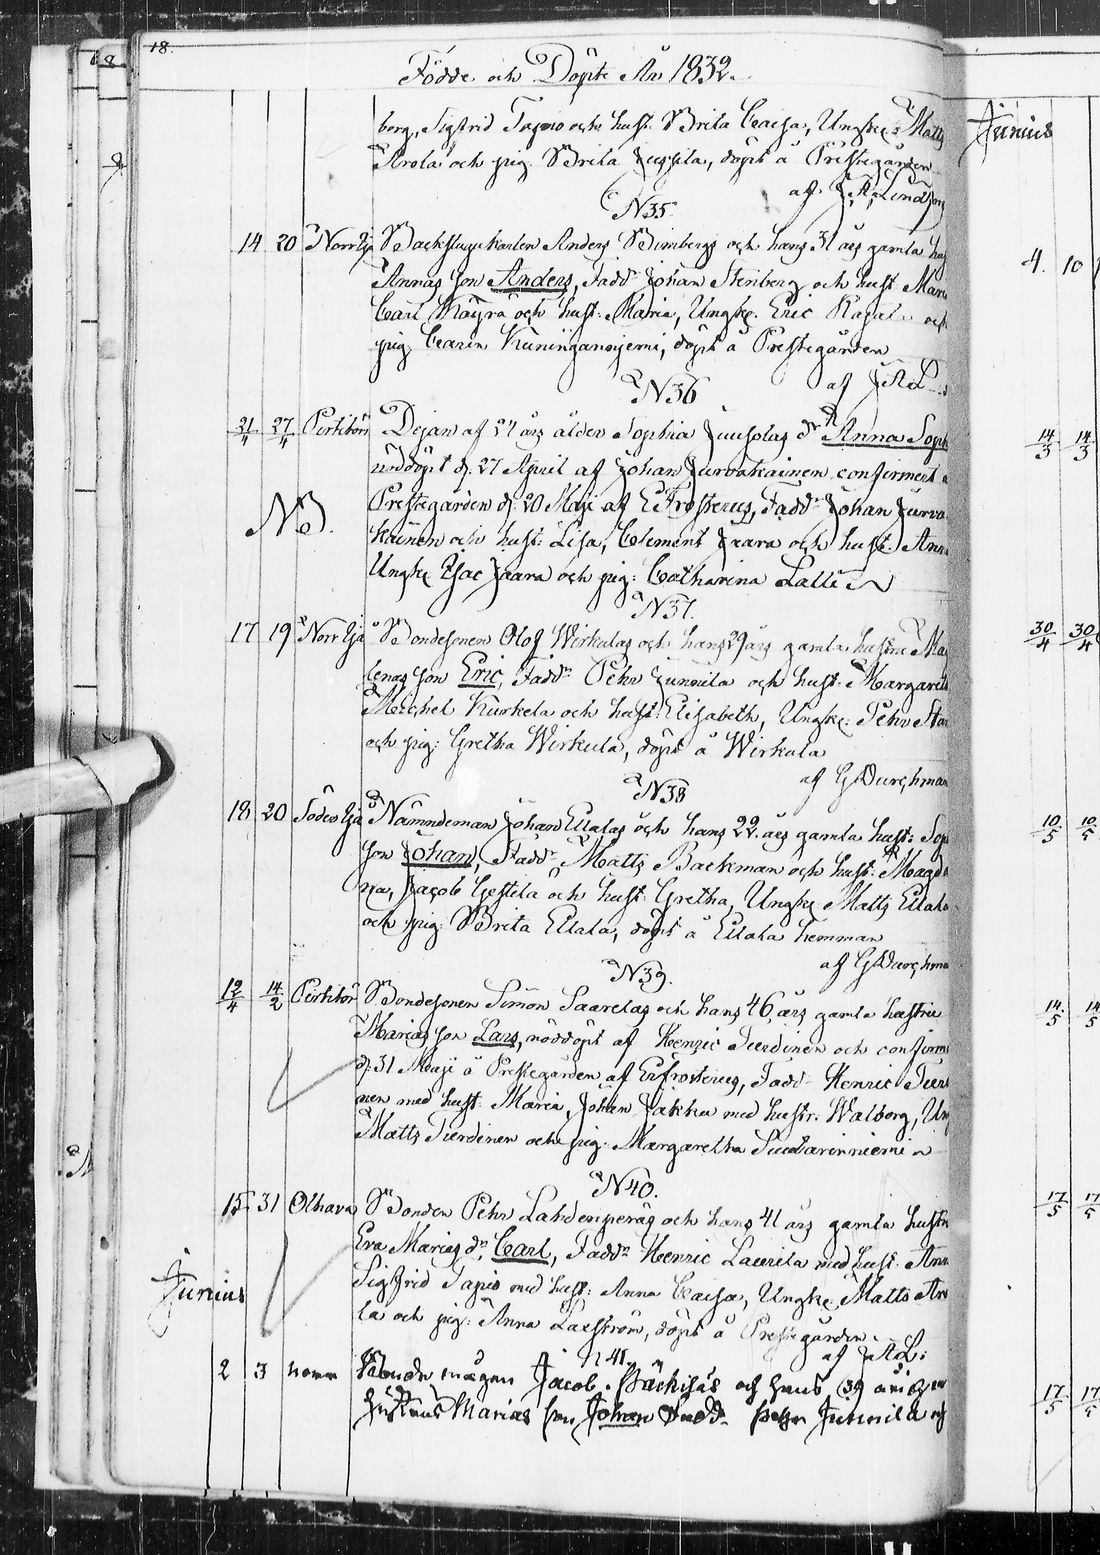 18.
Födde och Döpte År 1832.
borg, Sigfrid Tapio och hust. Brita Caisa, Ungk: Matts
Arola och pig. Brita Jussila, döpt å Prestegården
af J. A. Lind
N35.
14 20 Norr Ijo Backstugukarlen Anders Bimbergs och hans 31 års gamla
Annas son Anders, Fadd. Johan Stenberg och hust. Mari
Carl Käyrä och hust. Maria, Ungk. Eric och
pig. Carin Kuninganniemi, döpt å Prestegården
af J.A.L.
N36
21/4 27/4 Pirtitörm Dejan af 27 års ålder Sophia Juusolas dr Anna Soph
nöddöpt d. 27 April af Johan Jurvakainen confirment
NB. Prestegården d. 20 Maji af E Frosterus, Fadd. Johan Jurva
kainen och hust: Lisa, Clement Jaara och hust. Anna
Ungk. Isac Jaara och pig: Catharina Latti
N37.
17 19 Norr Ijo Bondesonen Olof Wirkulas och hans 29 års gamla hustru Mag
lenas son Eric, Fadd. Pehr Junnila och hust. Margareta
Michel Kurkela och hust: Elisabeth, Ungk. Pehr
och pig: Gretha Wirkula, döpt å Wirkula
af G Durchman
N38
18 20 Söder Ijo Nämndeman Johan Ellalas och hans 22. års gamla hust: Sop
son Johan, Fadd. Matts Backman och hust. Magda
na, Jacob Gestila och hust. Gretha, Ungk. Matts Ellala
och pig. Brita Ellala, döpt å Ellala hemman
af G Durchma
N39.
12/4 14/2 Pirtitör Bondesonen Simon Saarelas och hans 46 års gamla hustru
Marias son Lars, nöddöpt af Henric Tuerdinen och confirm
d. 31 Maji å Prestegården af Er frosterus, Fadd. Henric Tuer
nen med hust. Maria, Johan Jakku med hustr. Walborg, Un
Matts Tuerdinen och pig. Margaretha
N40.
15 31 Olhava Bonden Pehr Lahdenperäs och hans 41 års gamla hustru
Eva Marias dr. Carl, Fadd. Henric Laurila med hust. Anna
Sigfrid Tapio med hust: Anna Caisa, Ungk. Matts Aro
la och pig: Anna Laxström, döpt å Prestegården.
af J.A.L.
Junius
N 41.
2 3 norr Bonde mågen Jacob och hans 39 års
hustrus Marias son Johan Fadd. Petter Junnila och
Junius
4. 10
14/3 14/3
30/4 30/4
10/5 10/5
14/5 14/5
17/5 17/5
17/5 17/5